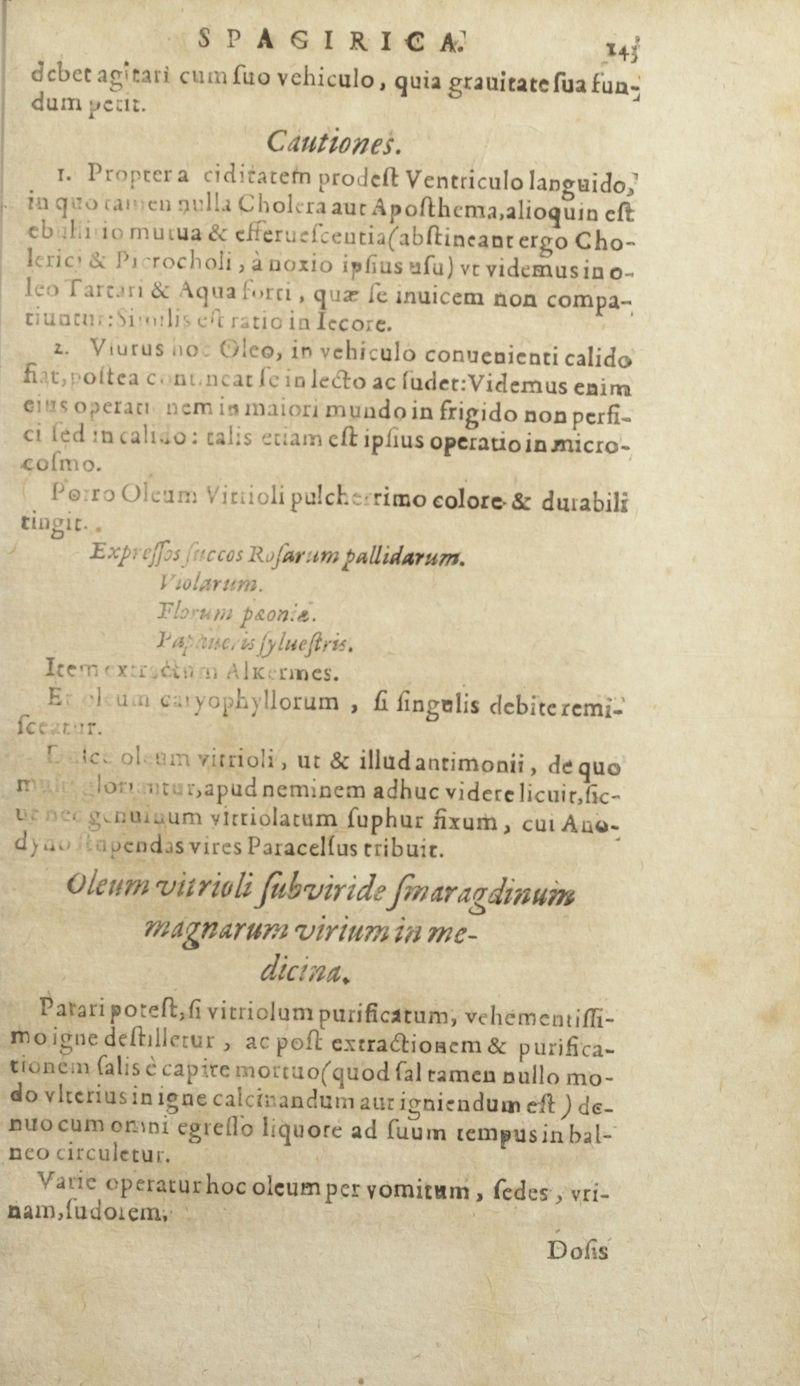 SPAGIRICA. 145
debet agitari cum suo vehiculo, quia grauitate sua fun-
dum petit.
Cautiones.
1. Propter a ciditatem prodest Ventriculo languido,
in quo tamen nulla Cholera aut Aposthema, alioquin est
ebullitio mutua & efferuescentia (abstineant ergo Cho-
lerici & Picrocholi, à noxio ipsius usu) vt videmus in o-
leo Tartari & Aqua forti, quæ se inuicem non compa-
tiuntur: Similis est ratio in Iecore.
2. Vturus hoc Oleo, in vehiculo conuenienti calido
fiat, postea contineat se in lecto ac sudet: Videmus enim
eius operationem in maiori mundo in frigido non perfi-
ci sed in calido: talis etiam est ipsius operatio in micro-
cosmo.
Porro Oleum Vitrioli pulcherrimo colore & durabili
tingit.
Expressos succos Rosarum pallidarum.
Violarum.
Florum pæoniæ.
Papaueris syluestris.
Item extractum Alkermes.
Et oleum caryophyllorum, si singulis debite remi-
sceatur.
ole um vitrioli, ut & illud antimonii, de quo
apud neminem adhuc videre licuit, sic-
ut nec genuinum vitriolatum suphur fixum, cui Ano-
dyno stupendas vires Paracelsus tribuit.
Oleum vitrioli subviride smaragdinum
magnarum virium in me-
dicina.
Parari potest, si vitriolum purificatum, vehementissi-
mo igne destilletur, ac post extractionem & purifica-
tionem salis è capite mortuo (quod sal tamen nullo mo-
do vlterius in igne calcinandum aut igniendum est) de-
nuo cum omni egresso liquore ad suum tempus in bal-
neo circuletur.
Varie operatur hoc oleum per vomitum, sedes, vri-
nam, sudorem,
Dosis